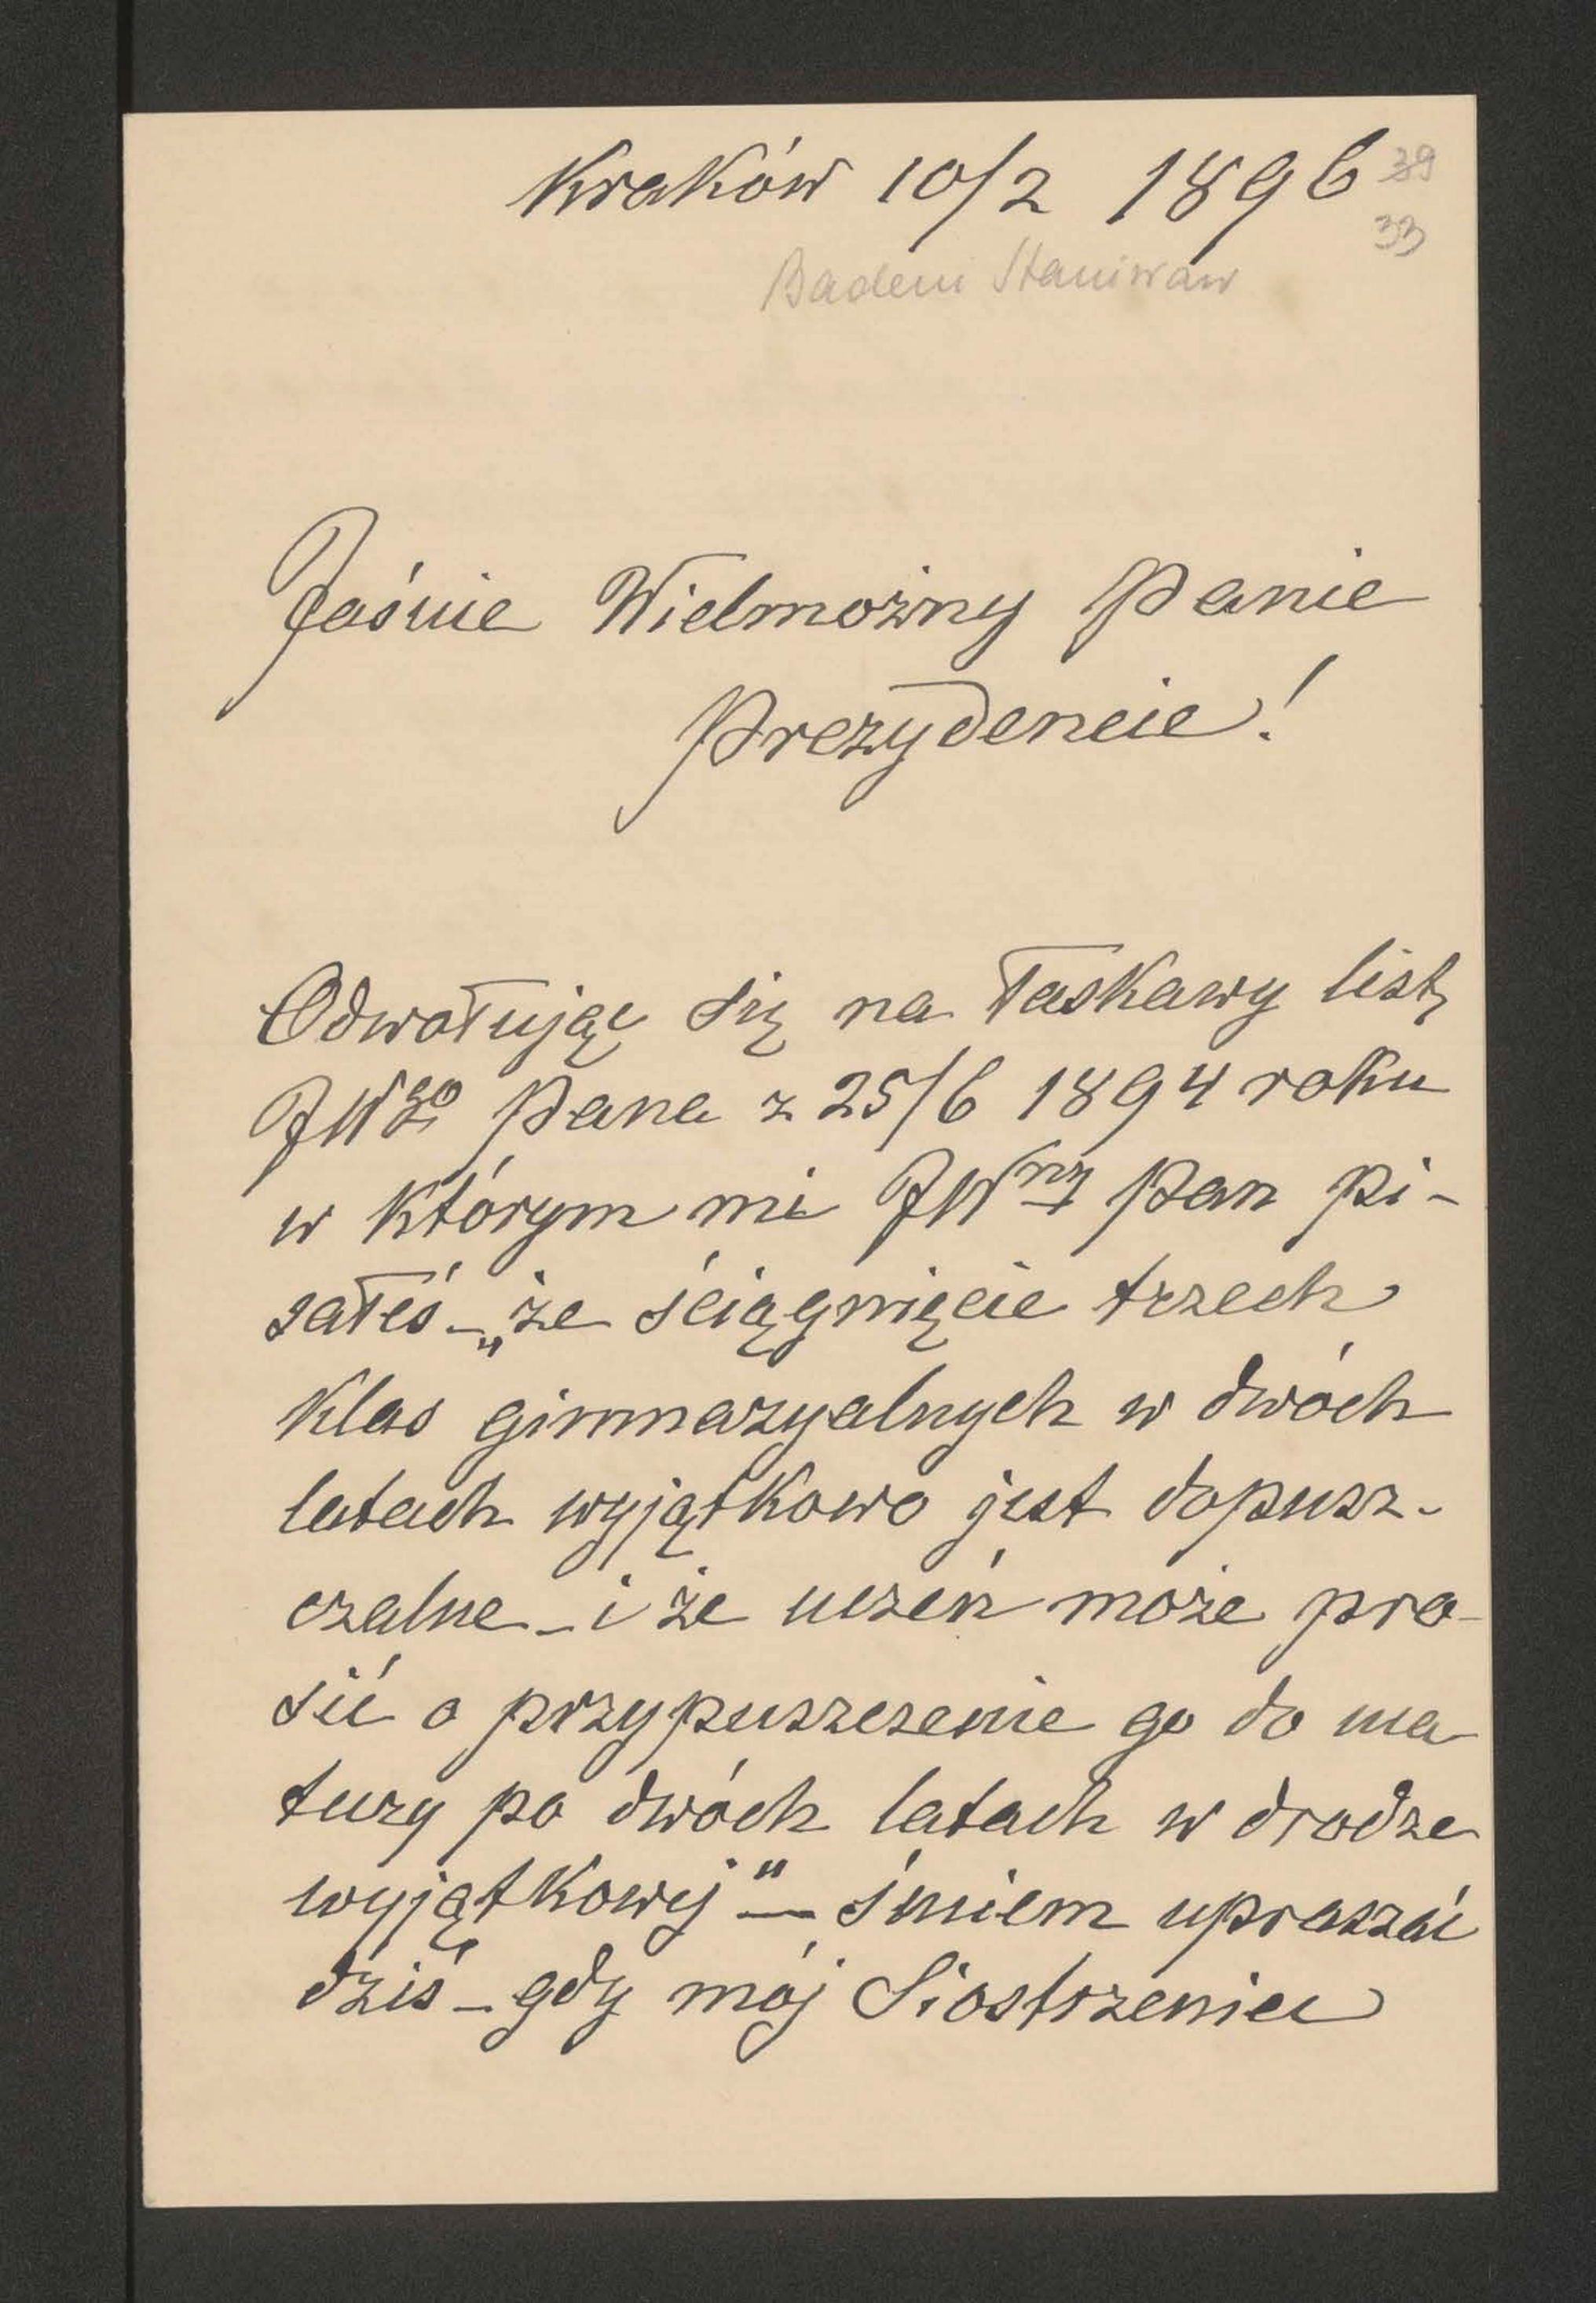 Kraków 10/2 1896 39
33
Badeni Stanisław
Jaśnie Wielmożny Panie
Prezydencie!
Odwołując się na łaskawy list,
JWgo Pana z 25/6 1894 roku
w którym mi JWny Pan pi-
sałeś – „że ściągnięcie trzech
klas gimnazyalnych w dwóch
latach wyjątkowo jest dopusz-
czalne – i że uczeń może pro-
sić o przypuszczenie go do ma-
tury po dwóch latach w drodze
wyjątkowej" – śmiem upraszać
dziś – gdy mój Siostrzeniec